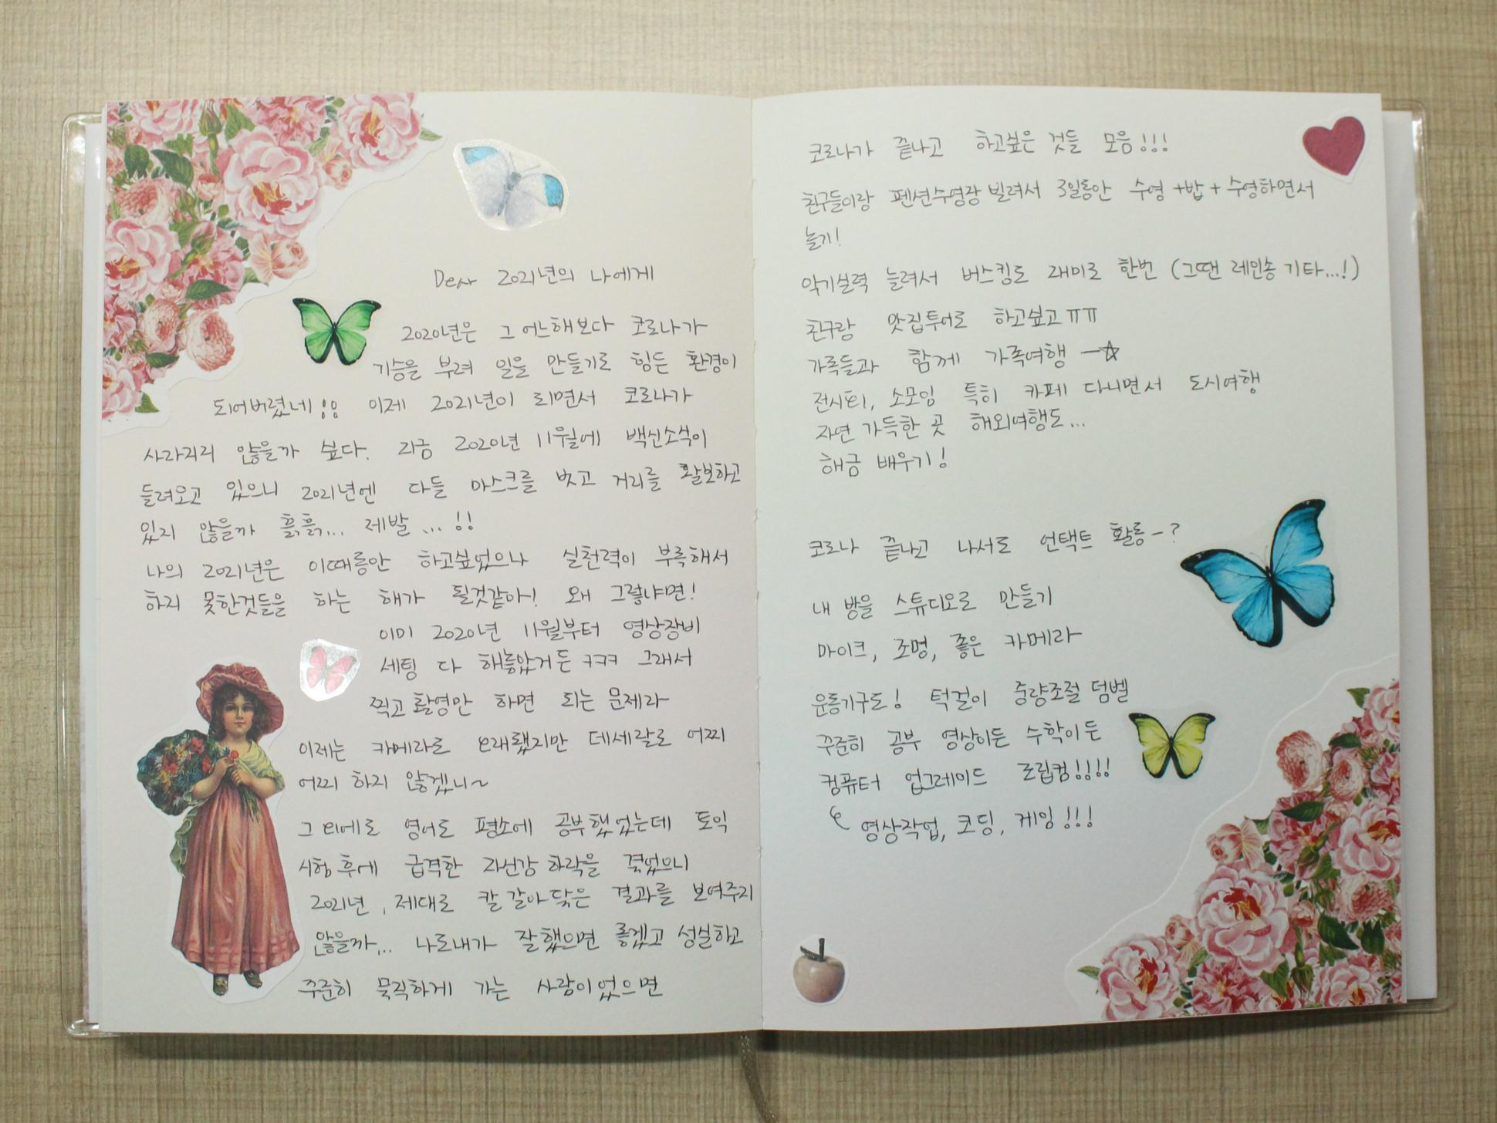 Dear 2021년의 나에게
2020년은 그 어느해보다 코로나가
기승을 부려 일을 만들기로 힘든 환경이
되어버렸네!! 이제 2021년이 되면서 코로나가
사라지리 않을까 싶다. 지금 2020년 11월에 백신소식이
들려오고 있으니 2021년엔 다들 마스크를 벗고 거리를 활보하고
있지 않을까 흙흙... 제발 ... !!
나의 2021년은 이때동안 하고싶었으나 실천력이 부족해서
하지 못한것들을 하는 해가 될것같아! 왜 그렇냐면!
이미 2020년 11월부터 영상장비
세팅 다 해놓았거든 ㅋㅋㅋ 그래서
찍고 촬영만 하면 되는 문제라
이제는 카메라도 오래됐지만 데세랄로 어찌
어찌 하지 않겠니~
그 외에도 영어도 평소에 공부했었는데 토익
시험 후에 급격한 자신감 하락을 겪었으니
2021년, 제대로 칼 갈아 닦은 결과를 보여주지
않을까... 나도 내가 잘했으면 좋겠고 성실하고
꾸준히 묵직하게 가는 사람이었으면
코로나가 끝나고 하고싶은 것들 모음!!!
친구들이랑 펜션수영장 빌려서 3일동안 수영+밥+수영하면서
놀기!
악기실력 늘려서 버스킹도 재미로 한번 (그땐 레인송 기타...!)
친구랑 맛집투어도 하고싶고ㅠㅠ
가족들과 함께 가족여행 —☆
전시회, 소모임 특히 카페 다니면서 도시여행
자연 가득한 곳 해외여행도...
해금 배우기!
코로나 끝나고 나서도 언택트 활동-?
내 방을 스튜디오로 만들기
마이크, 조명, 좋은 카메라
운동기구도! 턱걸이 중량조절 덤벨
꾸준히 공부 영상이든 수학이든
컴퓨터 업그레이드 조립컴!!!!
영상작업, 코딩, 게임!!!